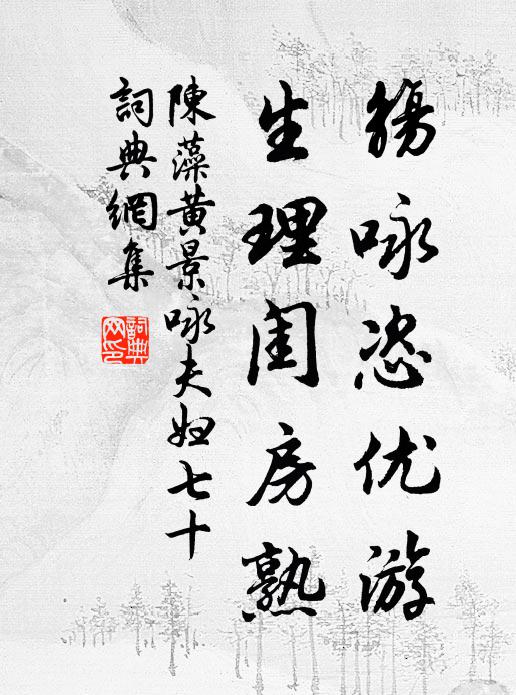 觞咏恣优游
生理闺房熟
陳藻黄景咏夫妇七十
詞典網集
詞典网印